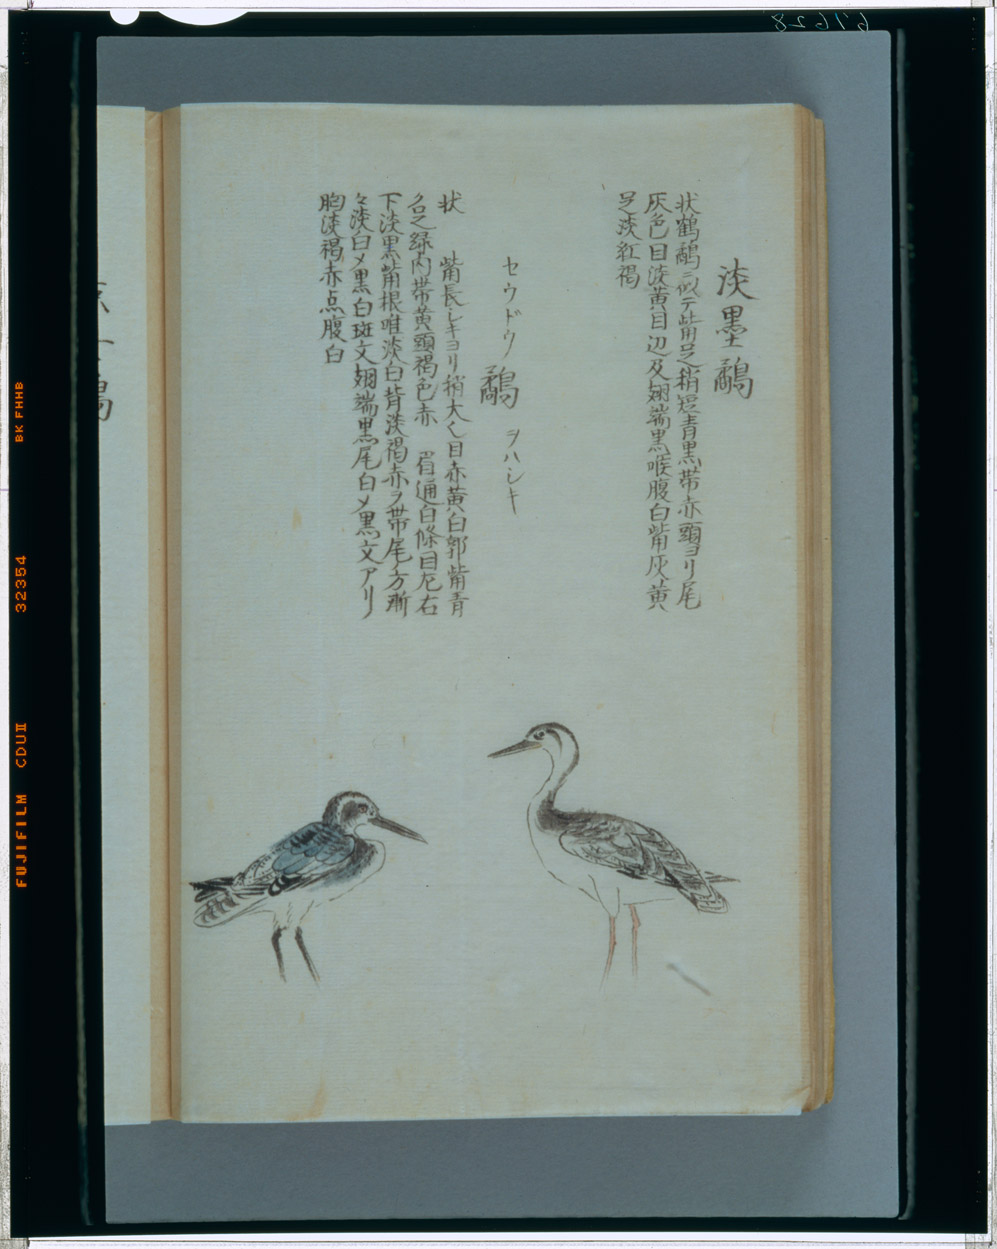 淡墨鷸
状鶴鷸ニ似テ觜足稍短青黒帯赤頭ヨリ尾
灰色目淡黄目辺及翅端黒喉腹白觜灰黄
足淡紅褐
セウドウ鷸 ヲハシキ
状 觜長シキヨリ稍大く目赤黄白郭觜青
名之緑内帯黄頭褐色赤 眉通白條目左右
下淡黒觜根唯淡白背淡褐赤ヲ帯尾ノ方漸
々淡白メ黒白斑文翅端黒尾白メ黒文アリ
胸淡褐赤点腹白
67628
FUJIFILM CDUII 32354 BKFHHB